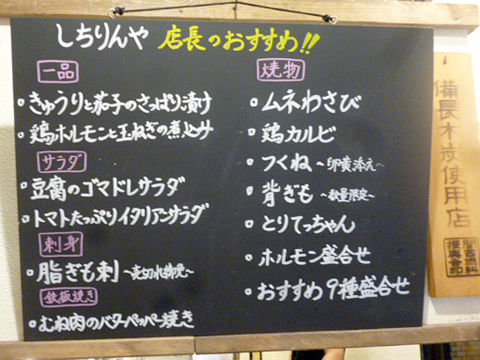 しちりんや 店長のおすすめ!!
一品
・きゅうりと茄子のさっぱり漬け
・鶏ホルモンと玉ねぎの煮込み
サラダ
・豆腐のゴマドレサラダ
・トマトたっぷりイタリアンサラダ
刺身
・脂ぎも刺 〜売切れ御免〜
鉄板焼き
・むね肉のバターペッパー焼き
焼物
・ムネわさび
・鶏カルビ
・つくね 〜卵黄添え〜
・背ぎも 〜数量限定〜
・とりてっちゃん
・ホルモン盛合せ
・おすすめ9種盛合せ
備長木炭使用店